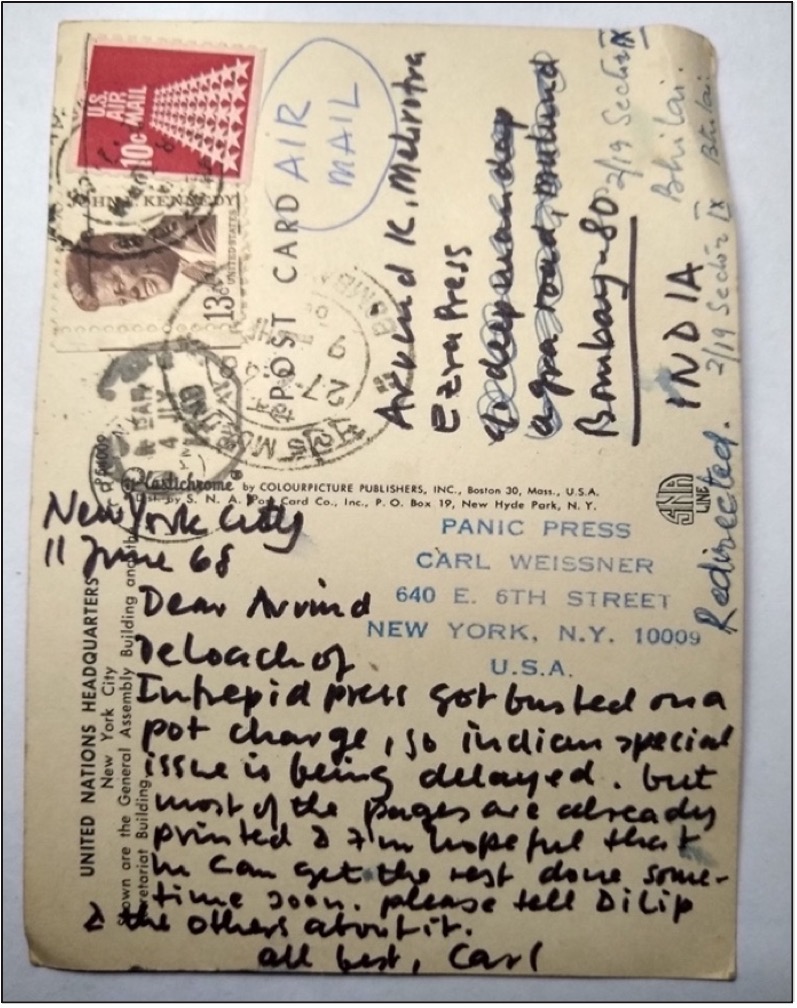 U.S.
AIR
MAIL
10c
JOHN F. KENNEDY
13c
UNITED STATES
AIR
MAIL
POST CARD
Arvind K. Mehrotra
Ezra Press
agra road, mulund
Bombay-80
INDIA
2/19 Sector IX
Bhilai.
Redirected. 2/19 Sector IX Bhilai
BOMBAY
27-
9
Plastichrome® by COLOURPICTURE PUBLISHERS, INC., Boston 30, Mass., U.S.A.
Dist. by S. N. A. Post Card Co., Inc., P. O. Box 19, New Hyde Park, N. Y.
SNA
LINE
PANIC PRESS
CARL WEISSNER
640 E. 6TH STREET
NEW YORK, N.Y. 10009
U.S.A.
UNITED NATIONS HEADQUARTERS
New York City
Shown are the General Assembly Building and the
Secretariat Building.
New York City
11 June 68
Dear Arvind
DeLoach of
Intrepid press got busted on a
pot charge, so indian special
issue is being delayed. but
most of the pages are already
printed & I'm hopeful that
he can get the rest done some-
time soon. please tell Dilip
& the others about it.
all best, Carl